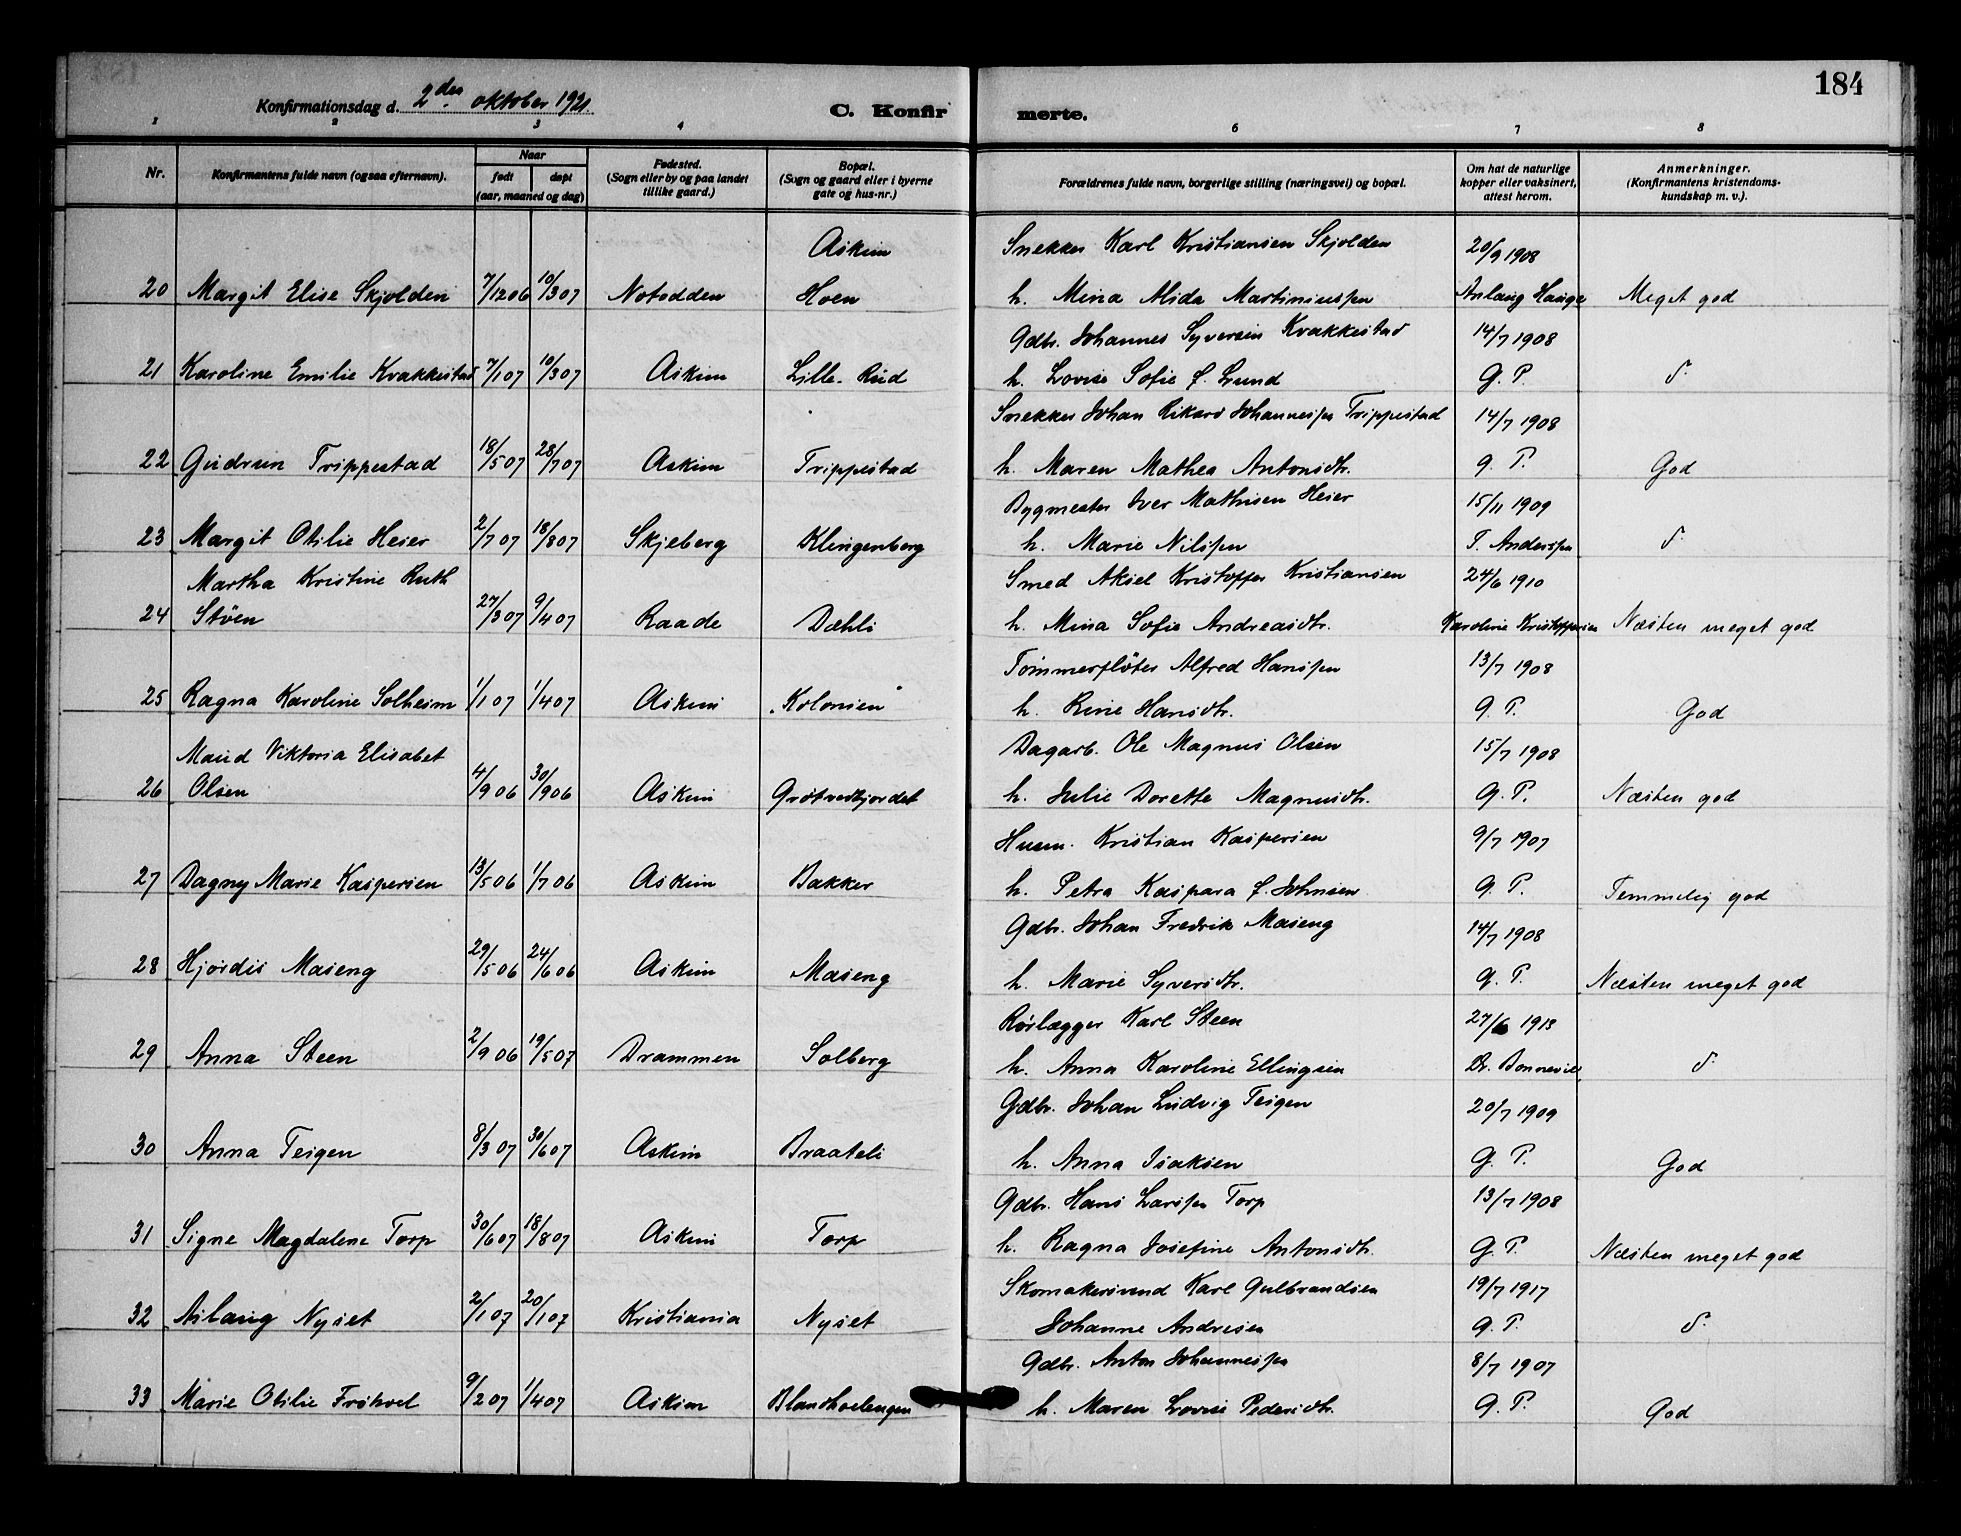 184
Konfirmationsdag d. 2den oktober 1921. C. Konfirmerte.
1 2 3 4 6 7 8
Nr. Konfirmantens fulde navn (ogsaa efternavn). Naar født døpt (aar, maaned og dag) Fødested. (Sogn eller by og paa landet tillike gaard.) Bopæl. (Sogn og gaard eller i byerne gate og hus-nr.) Forældrenes fulde navn, borgerlige stilling (næringsvei) og bopæl. Om hat de naturlige kopper eller vaksinert, attest herom. Anmerkninger. (Konfirmantens kristendoms-kundskap m. v.).
Askim Snekker Karl Kristiansen Skjolden 20/9 1908
20 Margit Elise Skjolden 7/12 06 10/3 07 Notodden Hoen h. Mina Alida Martiniussen Anlaug Hauge Meget god
Gdbr. Johannes Syversen Kvakkestad 14/7 1908
21 Karoline Emilie Kvakkestad 7/1 07 10/3 07 Askim Lille-Rud h. Lovise Sofie f. Lund G. P. d.
Snekker Johan Rikard Johannessen Trippestad 14/7 1908
22 Gudrun Trippestad 18/5 07 28/7 07 Askim Trippestad h. Maren Mathea Antonsdtr. G. P. God
Bygmester Iver Mathisen Heier 15/11 1909
23 Margit Otilie Heier 2/7 07 18/8 07 Skjeberg Klingenberg h. Marie Nilssen T. Anderssen d.
Martha Kristine Ruth Smed Aksel Kristoffer Kristiansen 24/6 1910
24 Støen 27/3 07 9/4 07 Raade Dæhli h. Mina Sofie Andreasdtr. Karoline Kristoffersen Næsten meget god
Tømmerfløter Alfred Hanssen 13/7 1908
25 Ragna Karoline Solheim 1/1 07 1/4 07 Askim "Kolonien" h. Rine Hansdtr. G. P. God
Maud Viktoria Elisabet Dagarb. Ole Magnus Olsen 15/7 1908
26 Olsen 4/9 06 30/9 06 Askim Grøtvedtjordet h. Julie Dorette Magnusdtr. G. P. Næsten god
Husm. Kristian Kaspersen 9/7 1907
27 Dagny Marie Kaspersen 13/5 06 1/7 06 Askim Bakker h. Petra Kaspara f. Johnsen G. P. Temmelig god
Gdbr. Johan Fredrik Maseng 14/7 1908
28 Hjørdis Maseng 29/5 06 24/6 06 Askim Maseng h. Marie Syversdtr. G. P. Næsten meget god
Rørlægger Karl Steen 27/6 1913
29 Anna Steen 2/9 06 19/5 07 Drammen Solberg h. Anna Karoline Ellingsen Dr. Bonnevie d.
Gdbr. Johan Ludvig Teigen 20/7 1909
30 Anna Teigen 8/3 07 30/6 07 Askim Braateli h. Anna Isaksen G. P. God
Gdbr. Hans Larssen Torp 13/7 1908
31 Signe Magdalene Torp 30/6 07 18/8 07 Askim Torp h. Ragna Josefine Antonsdtr. G. P. Næsten meget god
Skomakersvend Karl Gulbrandsen 19/7 1917
32 Aslaug Nyset 2/1 07 20/1 07 Kristiania Nyset Johanne Andresen G. P. d.
Gdbr. Anton Johannessen 8/7 1907
33 Marie Otilie Frøhvel 9/2 07 1/4 07 Askim h. Maren Lovise Pedersdtr. G. P. God